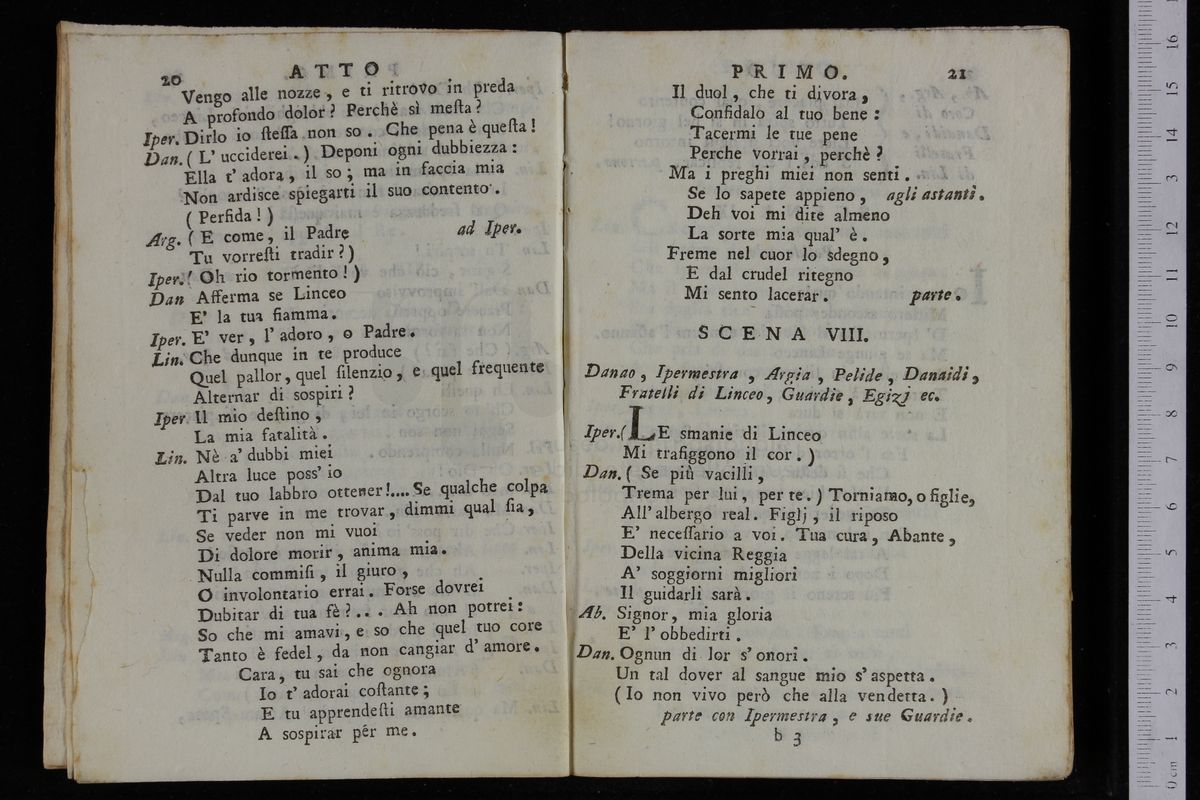 20
ATTO
Vengo alle nozze, e ti ritrovo in preda
A profondo dolor? Perchè sì meſta?
Iper. Dirlo io ſteſſa non so. Che pena è queſta!
Dan. ( L' ucciderei. ) Deponi ogni dubbiezza:
Ella t' adora, il so; ma in faccia mia
Non ardisce spiegarti il suo contento.
( Perfida! )
Arg. ( E come, il Padre ad Iper.
Tu vorreſti tradir? )
Iper. ( Oh rio tormento! )
Dan Afferma se Linceo
E' la tua fiamma.
Iper. E' ver, l' adoro, o Padre.
Lin. Che dunque in te produce
Quel pallor, quel ſilenzio, e quel frequente
Alternar di sospiri?
Iper Il mio deſtino,
La mia fatalità.
Lin. Nè a' dubbi miei
Altra luce poss' io
Dal tuo labbro ottener!.... Se qualche colpa
Ti parve in me trovar, dimmi qual ſia,
Se veder non mi vuoi
Di dolore morir, anima mia.
Nulla commiſi, il giuro,
O involontario errai. Forse dovrei
Dubitar di tua fè?... Ah non potrei:
So che mi amavi, e so che quel tuo core
Tanto è fedel, da non cangiar d' amore.
Cara, tu sai che ognora
Io t' adorai coſtante;
E tu apprendeſti amante
A sospirar per me.
PRIMO.
21
Il duol, che ti divora,
Confidalo al tuo bene:
Tacermi le tue pene
Perche vorrai, perchè?
Ma i preghi miei non senti.
Se lo sapete appieno, agli astanti.
Deh voi mi dite almeno
La sorte mia qual' è.
Freme nel cuor lo sdegno,
E dal crudel ritegno
Mi sento lacerar. parte.
SCENA VIII.
Danao, Ipermestra, Argia, Pelide, Danaidi,
Fratelli di Linceo, Guardie, Egizj ec.
Iper. ( LE smanie di Linceo
Mi trafiggono il cor. )
Dan. ( Se più vacilli,
Trema per lui, per te. ) Torniamo, o figlie,
All' albergo real. Figlj, il riposo
E' neceſſario a voi. Tua cura, Abante,
Della vicina Reggia
A' soggiorni migliori
Il guidarli sarà.
Ab. Signor, mia gloria
E' l' obbedirti.
Dan. Ognun di lor s' onori.
Un tal dover al sangue mio s' aspetta.
( Io non vivo però che alla vendetta. )
parte con Ipermestra, e sue Guardie.
b 3
0 cm 1 2 3 4 5 6 7 8 9 10 11 12 13 14 15 16